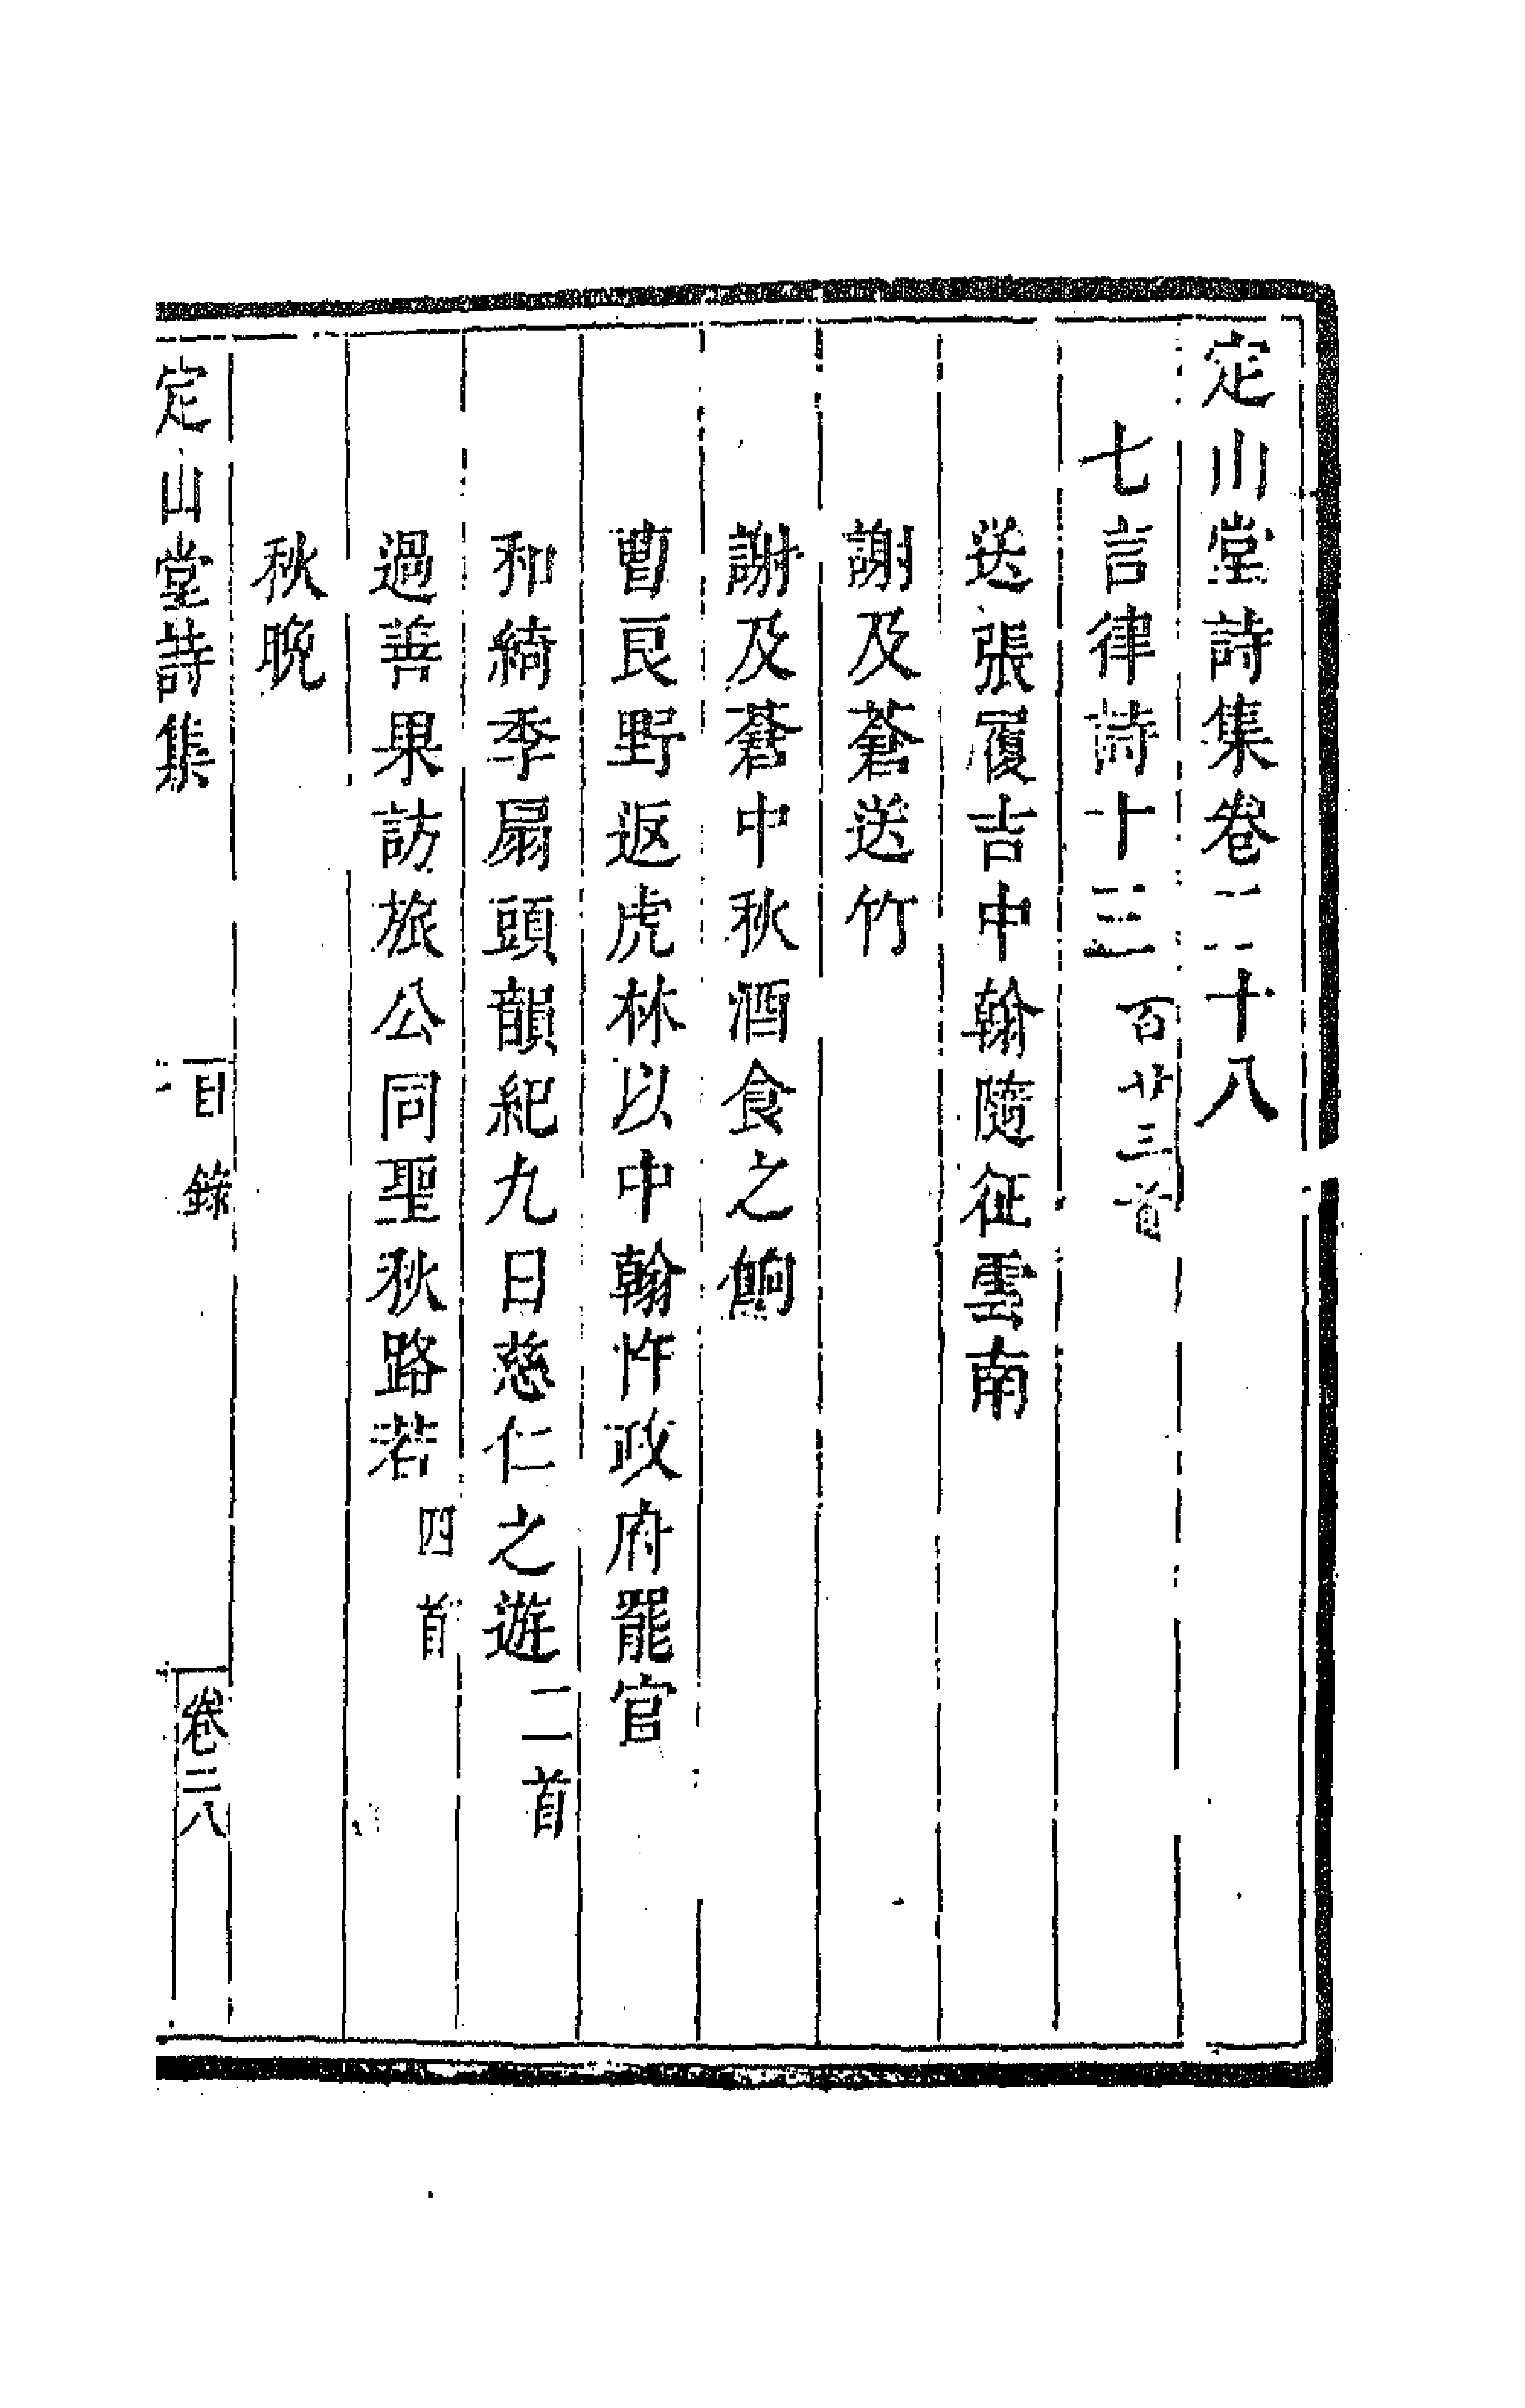 定山堂詩集卷二十八
七言律詩十三百廿三首
送張履吉中翰隨征雲南
謝及蒼送竹
謝及蒼中秋酒食之餉
曹艮野返虎林以中翰忤政府罷官
和綺季扇頭韻紀九日慈仁之遊二首
過善果訪旅公同聖秋路若四首
秋晚
定山堂詩集 目錄 卷二八